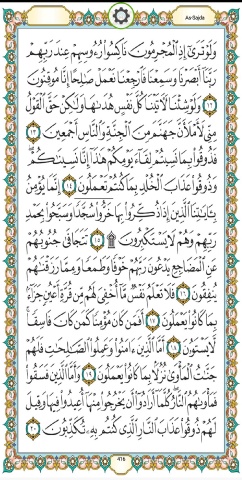 As-Sajda
وَلَوْ تَرَىٰٓ إِذِ ٱلْمُجْرِمُونَ نَاكِسُوا۟ رُءُوسِهِمْ عِندَ رَبِّهِمْ
رَبَّنَآ أَبْصَرْنَا وَسَمِعْنَا فَٱرْجِعْنَا نَعْمَلْ صَـٰلِحًا إِنَّا مُوقِنُونَ
١٢ وَلَوْ شِئْنَا لَـَٔاتَيْنَا كُلَّ نَفْسٍ هُدَىٰهَا وَلَـٰكِنْ حَقَّ ٱلْقَوْلُ
مِنِّى لَأَمْلَأَنَّ جَهَنَّمَ مِنَ ٱلْجِنَّةِ وَٱلنَّاسِ أَجْمَعِينَ ١٣
فَذُوقُوا۟ بِمَا نَسِيتُمْ لِقَآءَ يَوْمِكُمْ هَـٰذَآ إِنَّا نَسِينَـٰكُمْ
وَذُوقُوا۟ عَذَابَ ٱلْخُلْدِ بِمَا كُنتُمْ تَعْمَلُونَ ١٤ إِنَّمَا يُؤْمِنُ
بِـَٔايَـٰتِنَا ٱلَّذِينَ إِذَا ذُكِّرُوا۟ بِهَا خَرُّوا۟ سُجَّدًا وَسَبَّحُوا۟ بِحَمْدِ
رَبِّهِمْ وَهُمْ لَا يَسْتَكْبِرُونَ ۩ ١٥ تَتَجَافَىٰ جُنُوبُهُمْ
عَنِ ٱلْمَضَاجِعِ يَدْعُونَ رَبَّهُمْ خَوْفًا وَطَمَعًا وَمِمَّا رَزَقْنَـٰهُمْ
يُنفِقُونَ ١٦ فَلَا تَعْلَمُ نَفْسٌ مَّآ أُخْفِىَ لَهُم مِّن قُرَّةِ أَعْيُنٍ جَزَآءًۢ
بِمَا كَانُوا۟ يَعْمَلُونَ ١٧ أَفَمَن كَانَ مُؤْمِنًا كَمَن كَانَ فَاسِقًا ۚ
لَّا يَسْتَوُۥنَ ١٨ أَمَّا ٱلَّذِينَ ءَامَنُوا۟ وَعَمِلُوا۟ ٱلصَّـٰلِحَـٰتِ فَلَهُمْ
جَنَّـٰتُ ٱلْمَأْوَىٰ نُزُلًۢا بِمَا كَانُوا۟ يَعْمَلُونَ ١٩ وَأَمَّا ٱلَّذِينَ فَسَقُوا۟
فَمَأْوَىٰهُمُ ٱلنَّارُ ۖ كُلَّمَآ أَرَادُوٓا۟ أَن يَخْرُجُوا۟ مِنْهَآ أُعِيدُوا۟ فِيهَا وَقِيلَ
لَهُمْ ذُوقُوا۟ عَذَابَ ٱلنَّارِ ٱلَّذِى كُنتُم بِهِۦ تُكَذِّبُونَ ٢٠
416